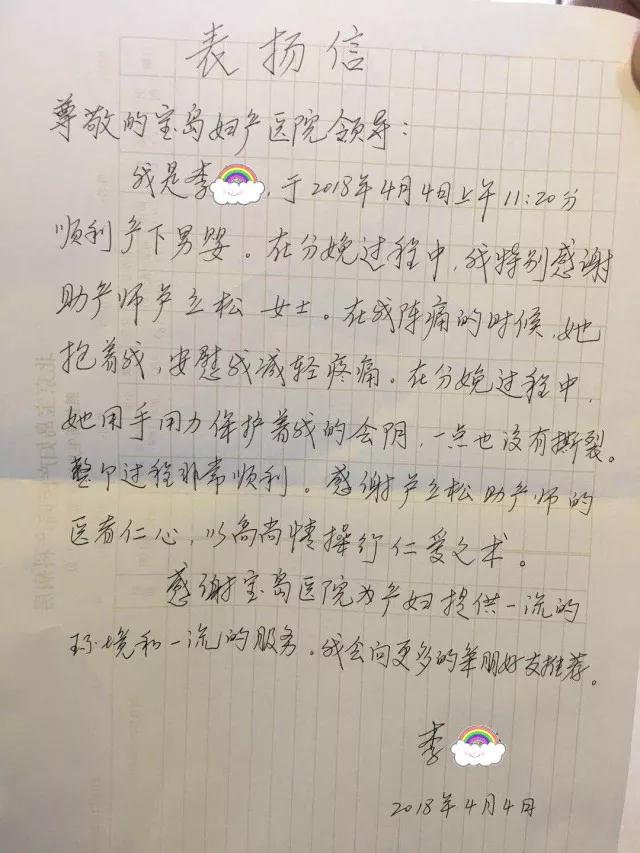 表扬信
尊敬的宝岛妇产医院领导：
我是李，于2018年4月4日上午11:20分
顺利产下男婴。在分娩过程中，我特别感谢
助产师芦立松女士。在我阵痛的时候，她
抱着我，安慰我减轻疼痛。在分娩过程中，
她用手用力保护着我的会阴，一点也没有撕裂。
整个过程非常顺利。感谢芦立松助产师的
医者仁心，以高尚情操行仁爱之术。
感谢宝岛医院为产妇提供一流的
环境和一流的服务。我会向更多的亲朋好友推荐。
李
2018年4月4日